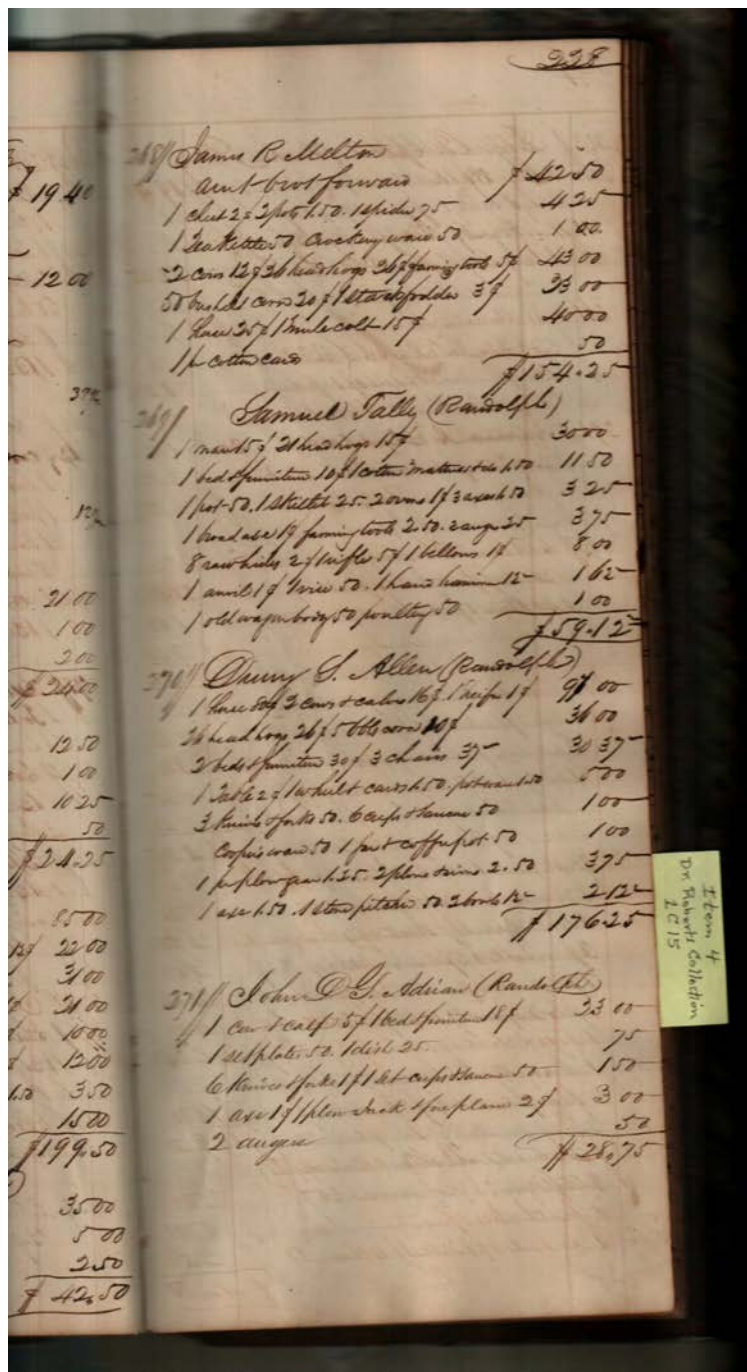 19 40
12 00
37½
12½
21 00
1 00
2 00
$ 24.00
12 50
1 00
10 25
50
$24.25
85 00
22 00
31 00
21 00
10 00
12 00
1.50 3 50
15 00
$199.50
35.00
5 00
2.50
$ 42.50
228
268// James R Melton
amt brot forward $ 42 50
1 chest 2$ 2 pots 1.50. 1 spider 75 4 25
1 Tea Kettle 50 Crockery ware 50 1 00.
2 cows 12$ 26 head hogs 26$ farming tools 5$ 43 00
50 bushels corn 20$ 1 stack fodder 3$ 23 00
1 horse 25$ 1 mule colt 15$ 40 00
1 pr cotton cards 50
$154.25
269// Samuel Tally (Randolph)
1 mare 15$ 21 head hogs 15$ 30 00
1 bed & furniture 10$ 1 cotton mattress 1.50 11 50
1 pot 50. 1 skillet 25. 2 ovens 1$ 3 axes 1.50 3 25
1 broad axe 1$ farming tools 2.50. 2 augers 25 3 75
8 raw hides 2$ 1 rifle 5$ 1 bellows 1$ 8 00
1 anvil 1$ 1 vice 50. 1 hand hammer 12 1 62
1 old wagon body 50 poultry 50 1 00
$59.12
270// Drury S. Allen (Randolph)
1 horse 80$ 2 cows & calves 16$. 1 heifer 1$ 97 00
26 head hogs 26$ 5 bbls corn 10$ 36 00
2 beds & furniture 30$ 3 chairs 37 30 37
1 Table 2$ 1 wheel & cards 1.50. pot ware 1.50 5 00
3 Knives & forks 50. 6 cups & saucers 50 1 00
Coopers ware 50 1 coffee pot 50 1 00
1 pr plow gear 1.25. 2 plows & irons 2.50 3 75
1 axe 1.50. 1 stone pitcher 50 2 bowls 12 2 12
$176.25
271// John D G. Adrian (Randolph)
1 cow & calf 5$ 1 bed & furniture 18$ 23 00
1 set plates 50. 1 dish 25. 75
6 Knives & forks 1$ 1 set cups & saucers 50 1 50
1 axe 1$ 1 plow Jack & fore plane 2$ 3 00
2 augers 50
$ 28.75
Item 4
Dr. Roberts Collection
2C15